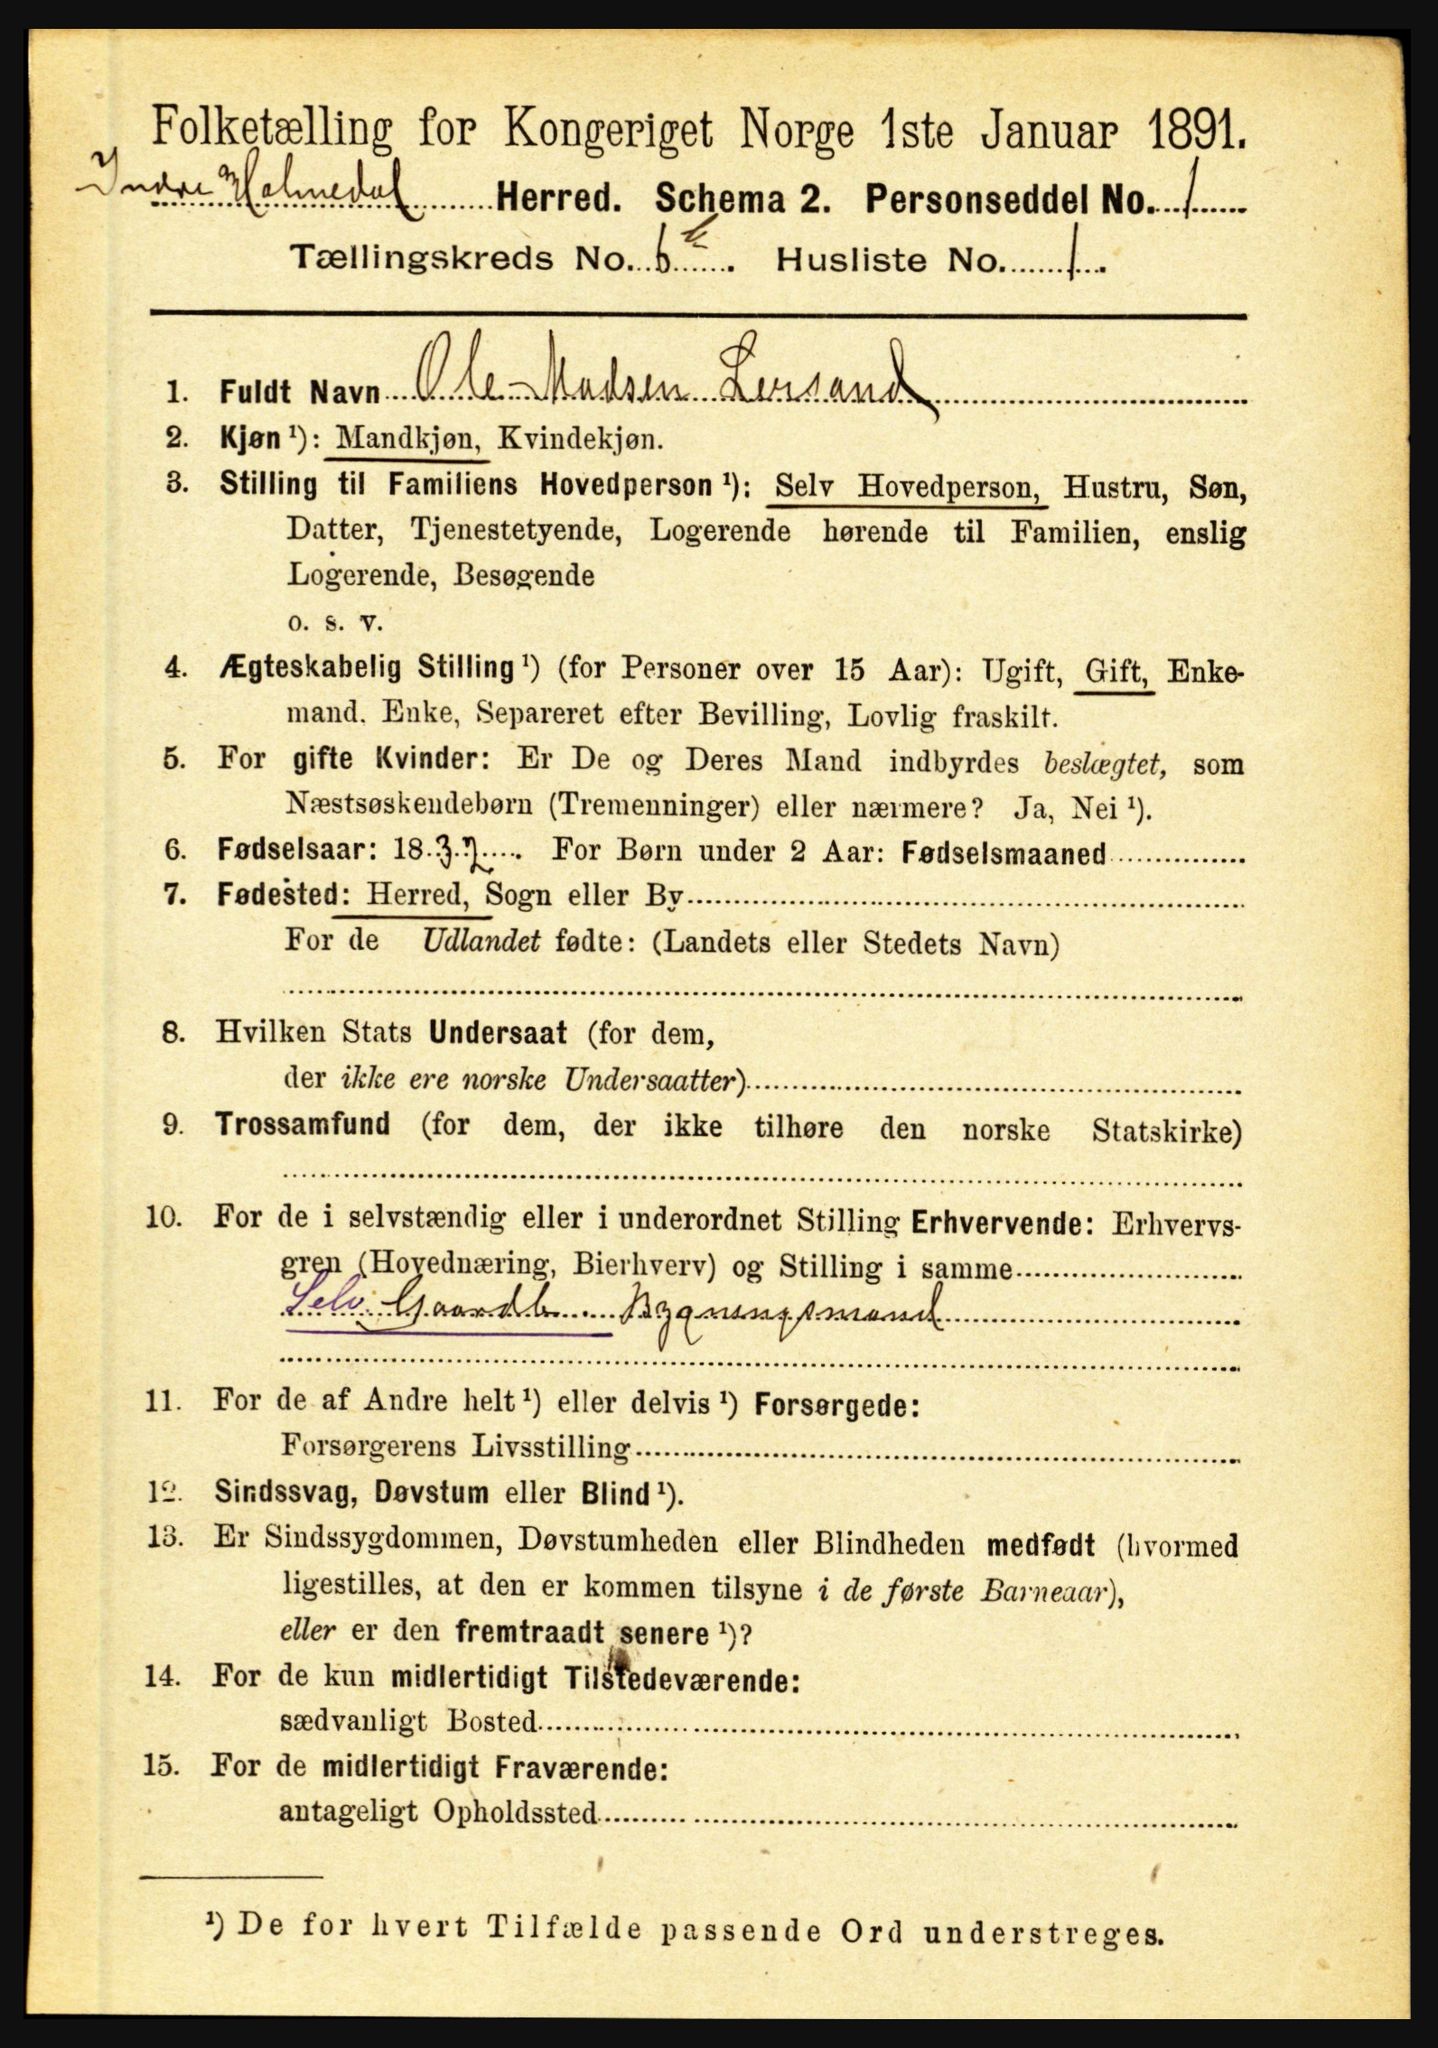 Folketælling for Kongeriget Norge 1ste Januar 1891.
Indre Holmedal Herred. Schema 2. Personseddel No. 1
Tællingskreds No. 6 . Husliste No. 1.
1. Fuldt Navn Ole Madsen Lersand
2. Kjøn ¹): Mandkjøn, Kvindekjøn.
3. Stilling til Familiens Hovedperson ¹): Selv Hovedperson, Hustru, Søn,
Datter, Tjenestetyende, Logerende hørende til Familien, enslig
Logerende, Besøgende
o. s. v.
4. Ægteskabelig Stilling ¹) (for Personer over 15 Aar): Ugift, Gift, Enke-
mand, Enke, Separeret efter Bevilling, Lovlig fraskilt.
5. For gifte Kvinder: Er De og Deres Mand indbyrdes beslægtet, som
Næstsøskendebørn (Tremenninger) eller nærmere? Ja, Nei ¹).
6. Fødselsaar: 1837. For Børn under 2 Aar: Fødselsmaaned
7. Fødested: Herred, Sogn eller By
For de Udlandet fødte: (Landets eller Stedets Navn)
8. Hvilken Stats Undersaat (for dem,
der ikke ere norske Undersaatter)
9. Trossamfund (for dem, der ikke tilhøre den norske Statskirke)
10. For de i selvstændig eller i underordnet Stilling Erhvervende: Erhvervs-
gren (Hovednæring, Bierhverv) og Stilling i samme
Selv. Gaardb. Bygningsmand
11. For de af Andre helt ¹) eller delvis ¹) Forsørgede:
Forsørgerens Livsstilling
12. Sindssvag, Døvstum eller Blind ¹).
13. Er Sindssygdommen, Døvstumheden eller Blindheden medfødt (hvormed
ligestilles, at den er kommen tilsyne i de første Barneaar),
eller er den fremtraadt senere ¹)?
14. For de kun midlertidigt Tilstedeværende:
sædvanligt Bosted
15. For de midlertidigt Fraværende:
antageligt Opholdssted
¹) De for hvert Tilfælde passende Ord understreges.